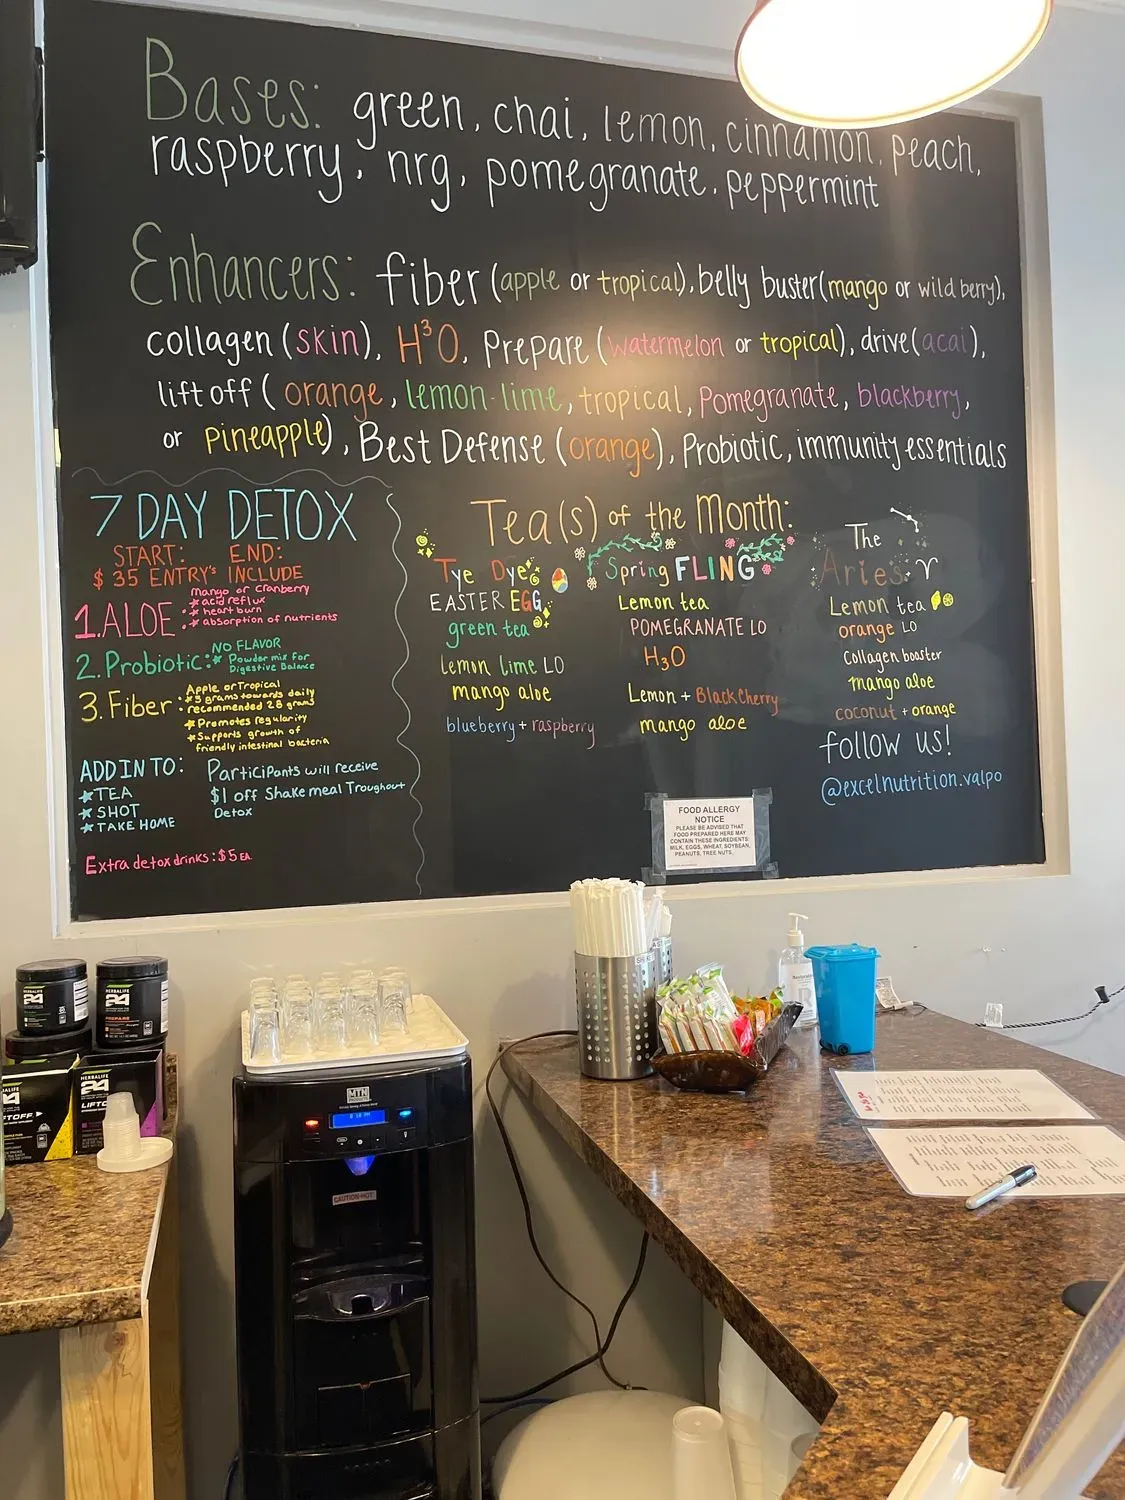 Bases: green, chai, lemon, cinnamon, peach,
raspberry, nrg, pomegranate, peppermint
Enhancers: fiber (apple or tropical), belly buster (mango or wild berry),
collagen (skin), H³O, Prepare (watermelon or tropical), drive (acai),
liftoff (orange, lemon-lime, tropical, Pomegranate, blackberry,
or Pineapple), Best Defense (orange), Probiotic, immunity essentials
7 DAY DETOX
START: END:
$35 ENTRY's INCLUDE
1. ALOE:
Mango or cranberry
* acid reflux
* heart burn
* absorption of nutrients
2. Probiotic:
NO FLAVOR
* Powder mix for
Digestive Balance
3. Fiber:
Apple or Tropical
* 3 grams towards daily
recommended 28 grams
* Promotes regularity
* Supports growth of
friendly intestinal bacteria
ADD IN TO:
* TEA
* SHOT
* TAKE HOME
Participants will receive
$1 off Shake meal Troughout
Detox
Extra detox drinks: $5 EA.
Tea(s) of the Month:
Tye Dye
EASTER EGG
green tea
lemon lime LO
mango aloe
blueberry + raspberry
Spring FLING
Lemon tea
POMEGRANATE LO
H3O
Lemon + Black Cherry
mango aloe
The
Aries
Lemon tea
orange LO
Collagen booster
mango aloe
coconut + orange
follow us!
@excelnutrition.valpo
FOOD ALLERGY
NOTICE
PLEASE BE ADVISED THAT
FOOD PREPARED HERE MAY
CONTAIN THESE INGREDIENTS:
MILK, EGGS, WHEAT, SOYBEAN,
PEANUTS, TREE NUTS,
HERBALIFE
24
HERBALIFE
24
PREPARE
HERBALIFE
24
HERBALIFE
24
LIFTO
MTN
CAUTION-HOT!